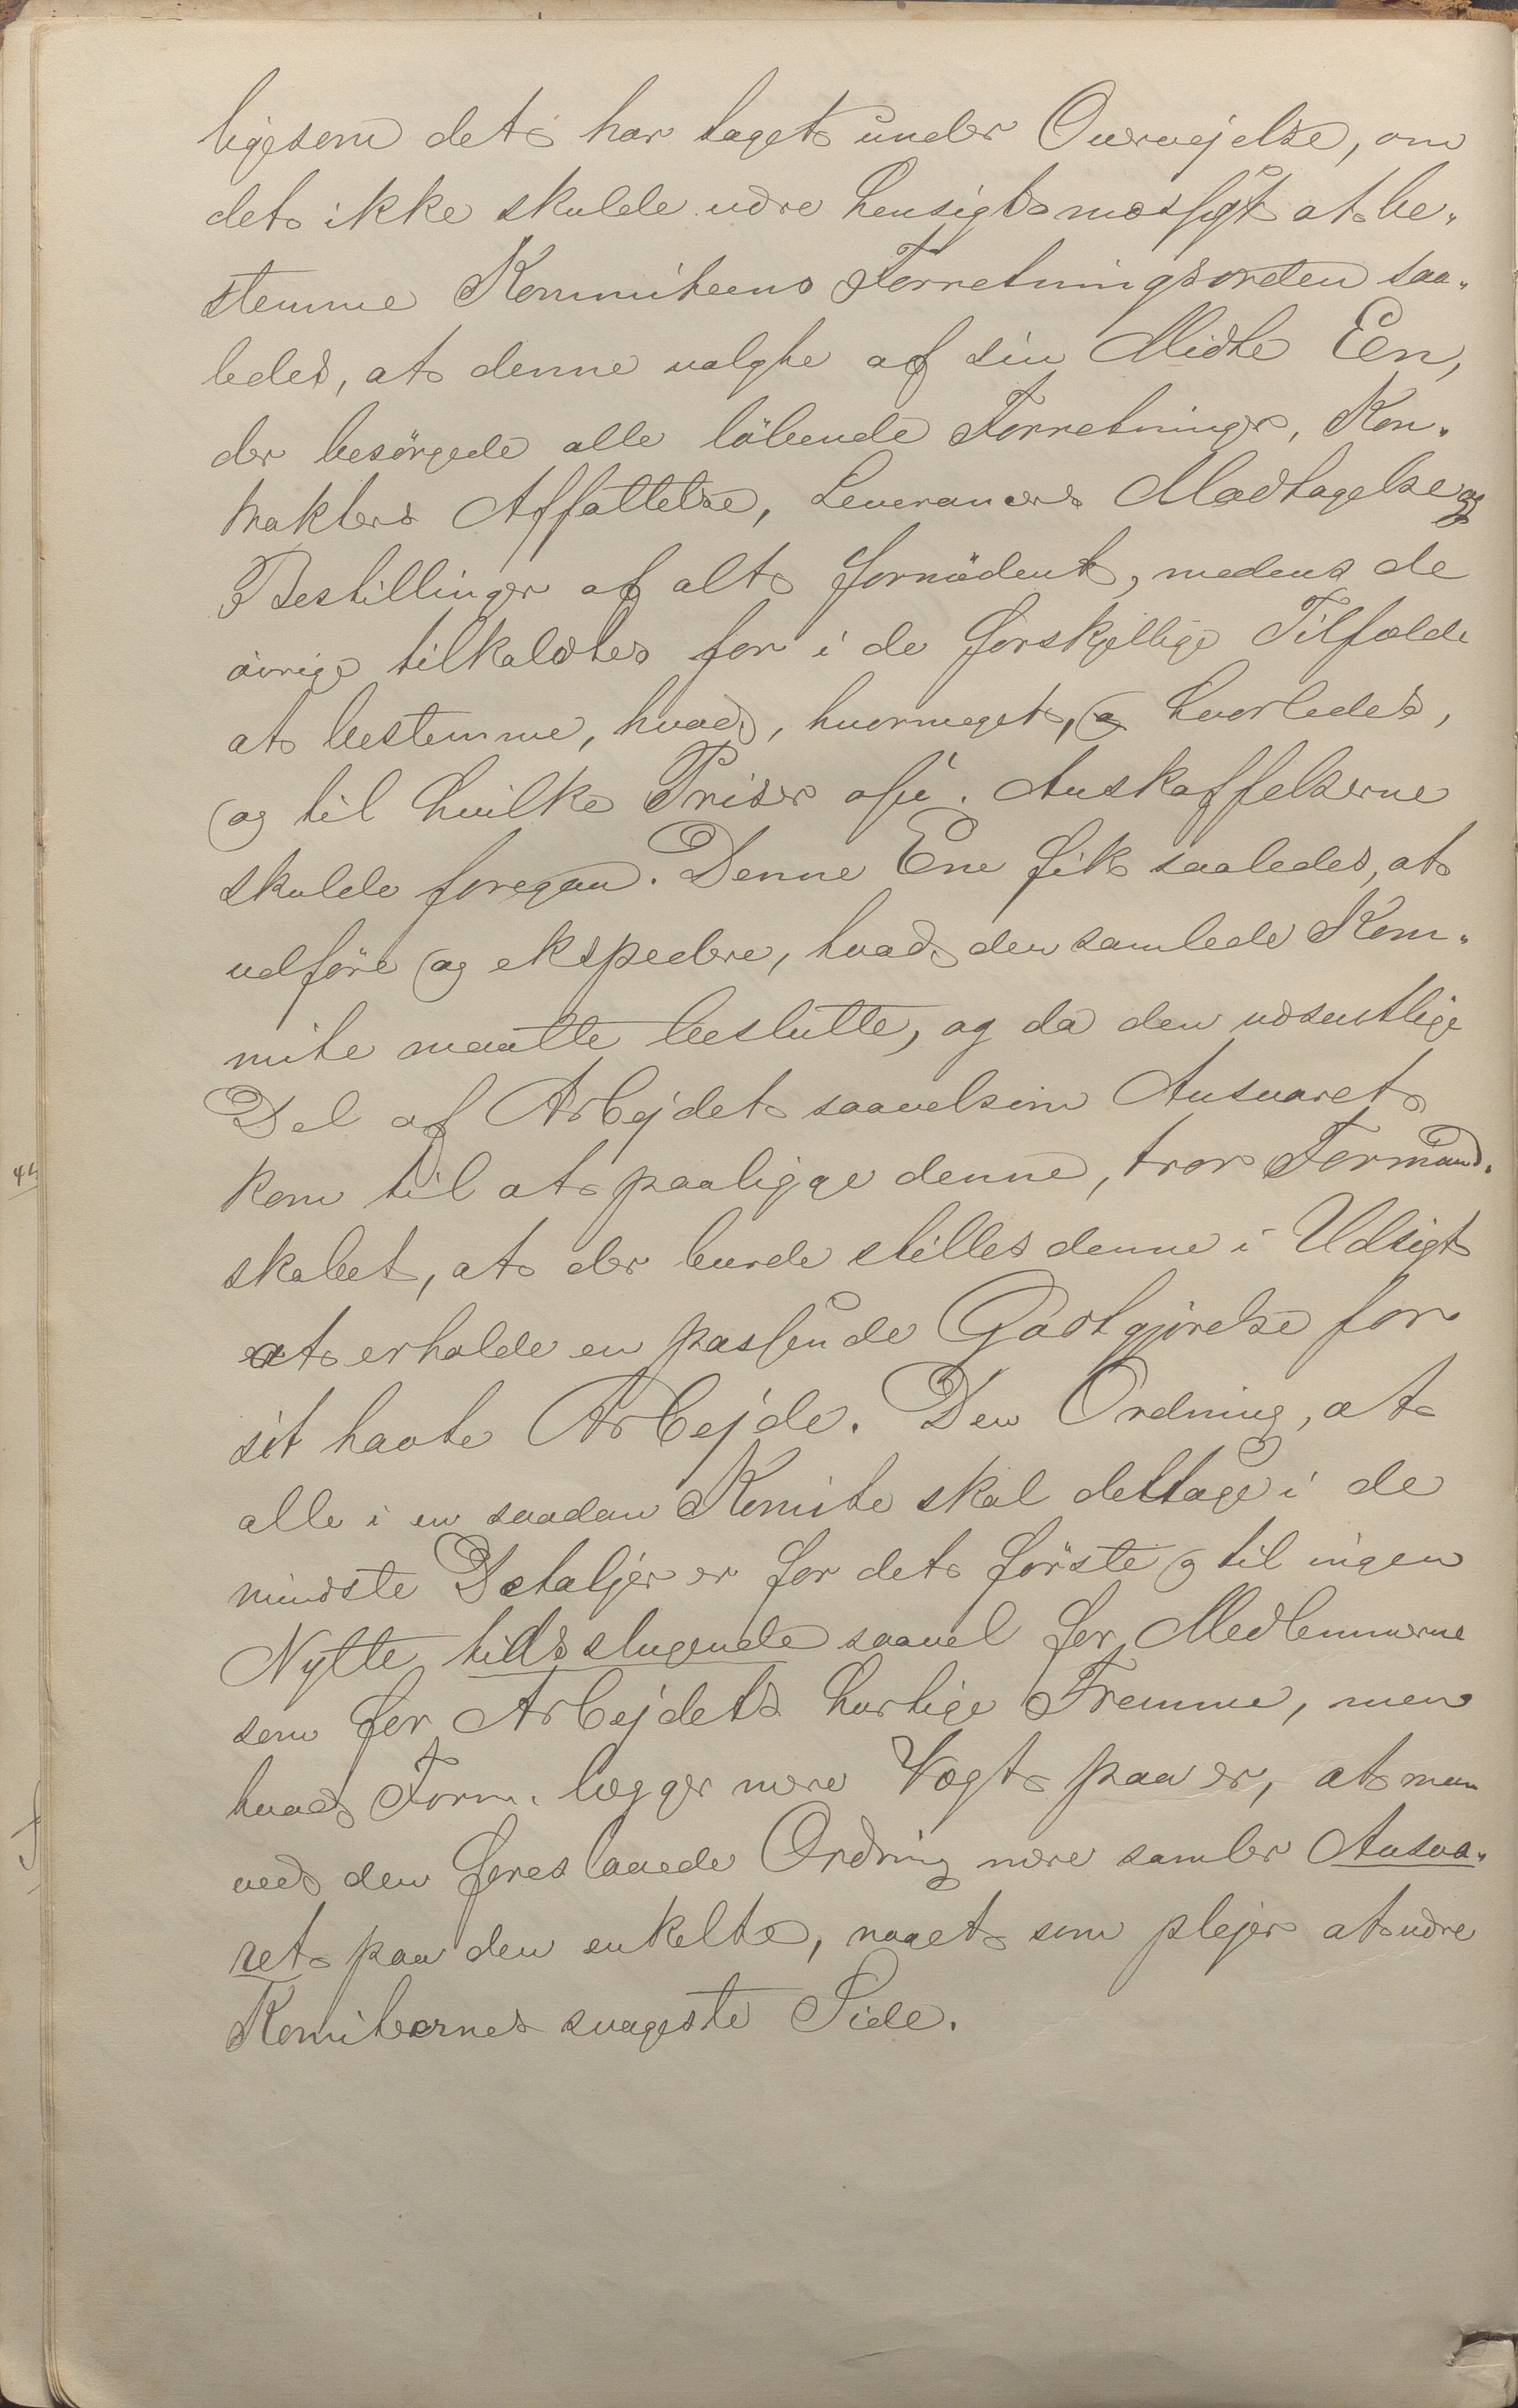 ligesom det har taget under Overvejelse, om
det ikke skulde være hensigtsmæssigt at be-
stemme Kommiteens Forretningsorden saa-
ledes, at denne valgte af sin Midte Een,
der besørgede alle løbende Forretninger, Kon-
trakters Affattelse, Leverancers Modtagelse og
Bestillinger af alt fornødent, medens de
øvrige tilkaldtes for i de forskjellige Tilfælde
at bestemme, hvad, hvormeget, hvorledes,
og til hvilke Priser osv. Anskaffelserne
skulde foregaa. Denne Ene fik saaledes, at
udføre og ekspedere, hvad den samlede Kom-
mite maatte beslutte, og da den væsentlige
Del af Arbejdet saavelsom Ansvaret
kom til at paaligge denne, tror Formand-
skabet, at der burde stilles denne i Udsigt
at erholde en passende Godtgjørelse for
sit havte Arbejde. Den Ordning, at
alle i en saadan Komite skal deltage i de
mindste Detaljer er for det første og til ingen
Nytte tidsslugende saavel for Medlemmerne
som for Arbejdets hurtige Fremme, men
hvad Form. lægger mere Vægt paa er, at man
ved den foreslaaede Ordning mere samler Ansva-
ret paa den enkelte, noget som plejer at være
Komiteernes svageste Side.